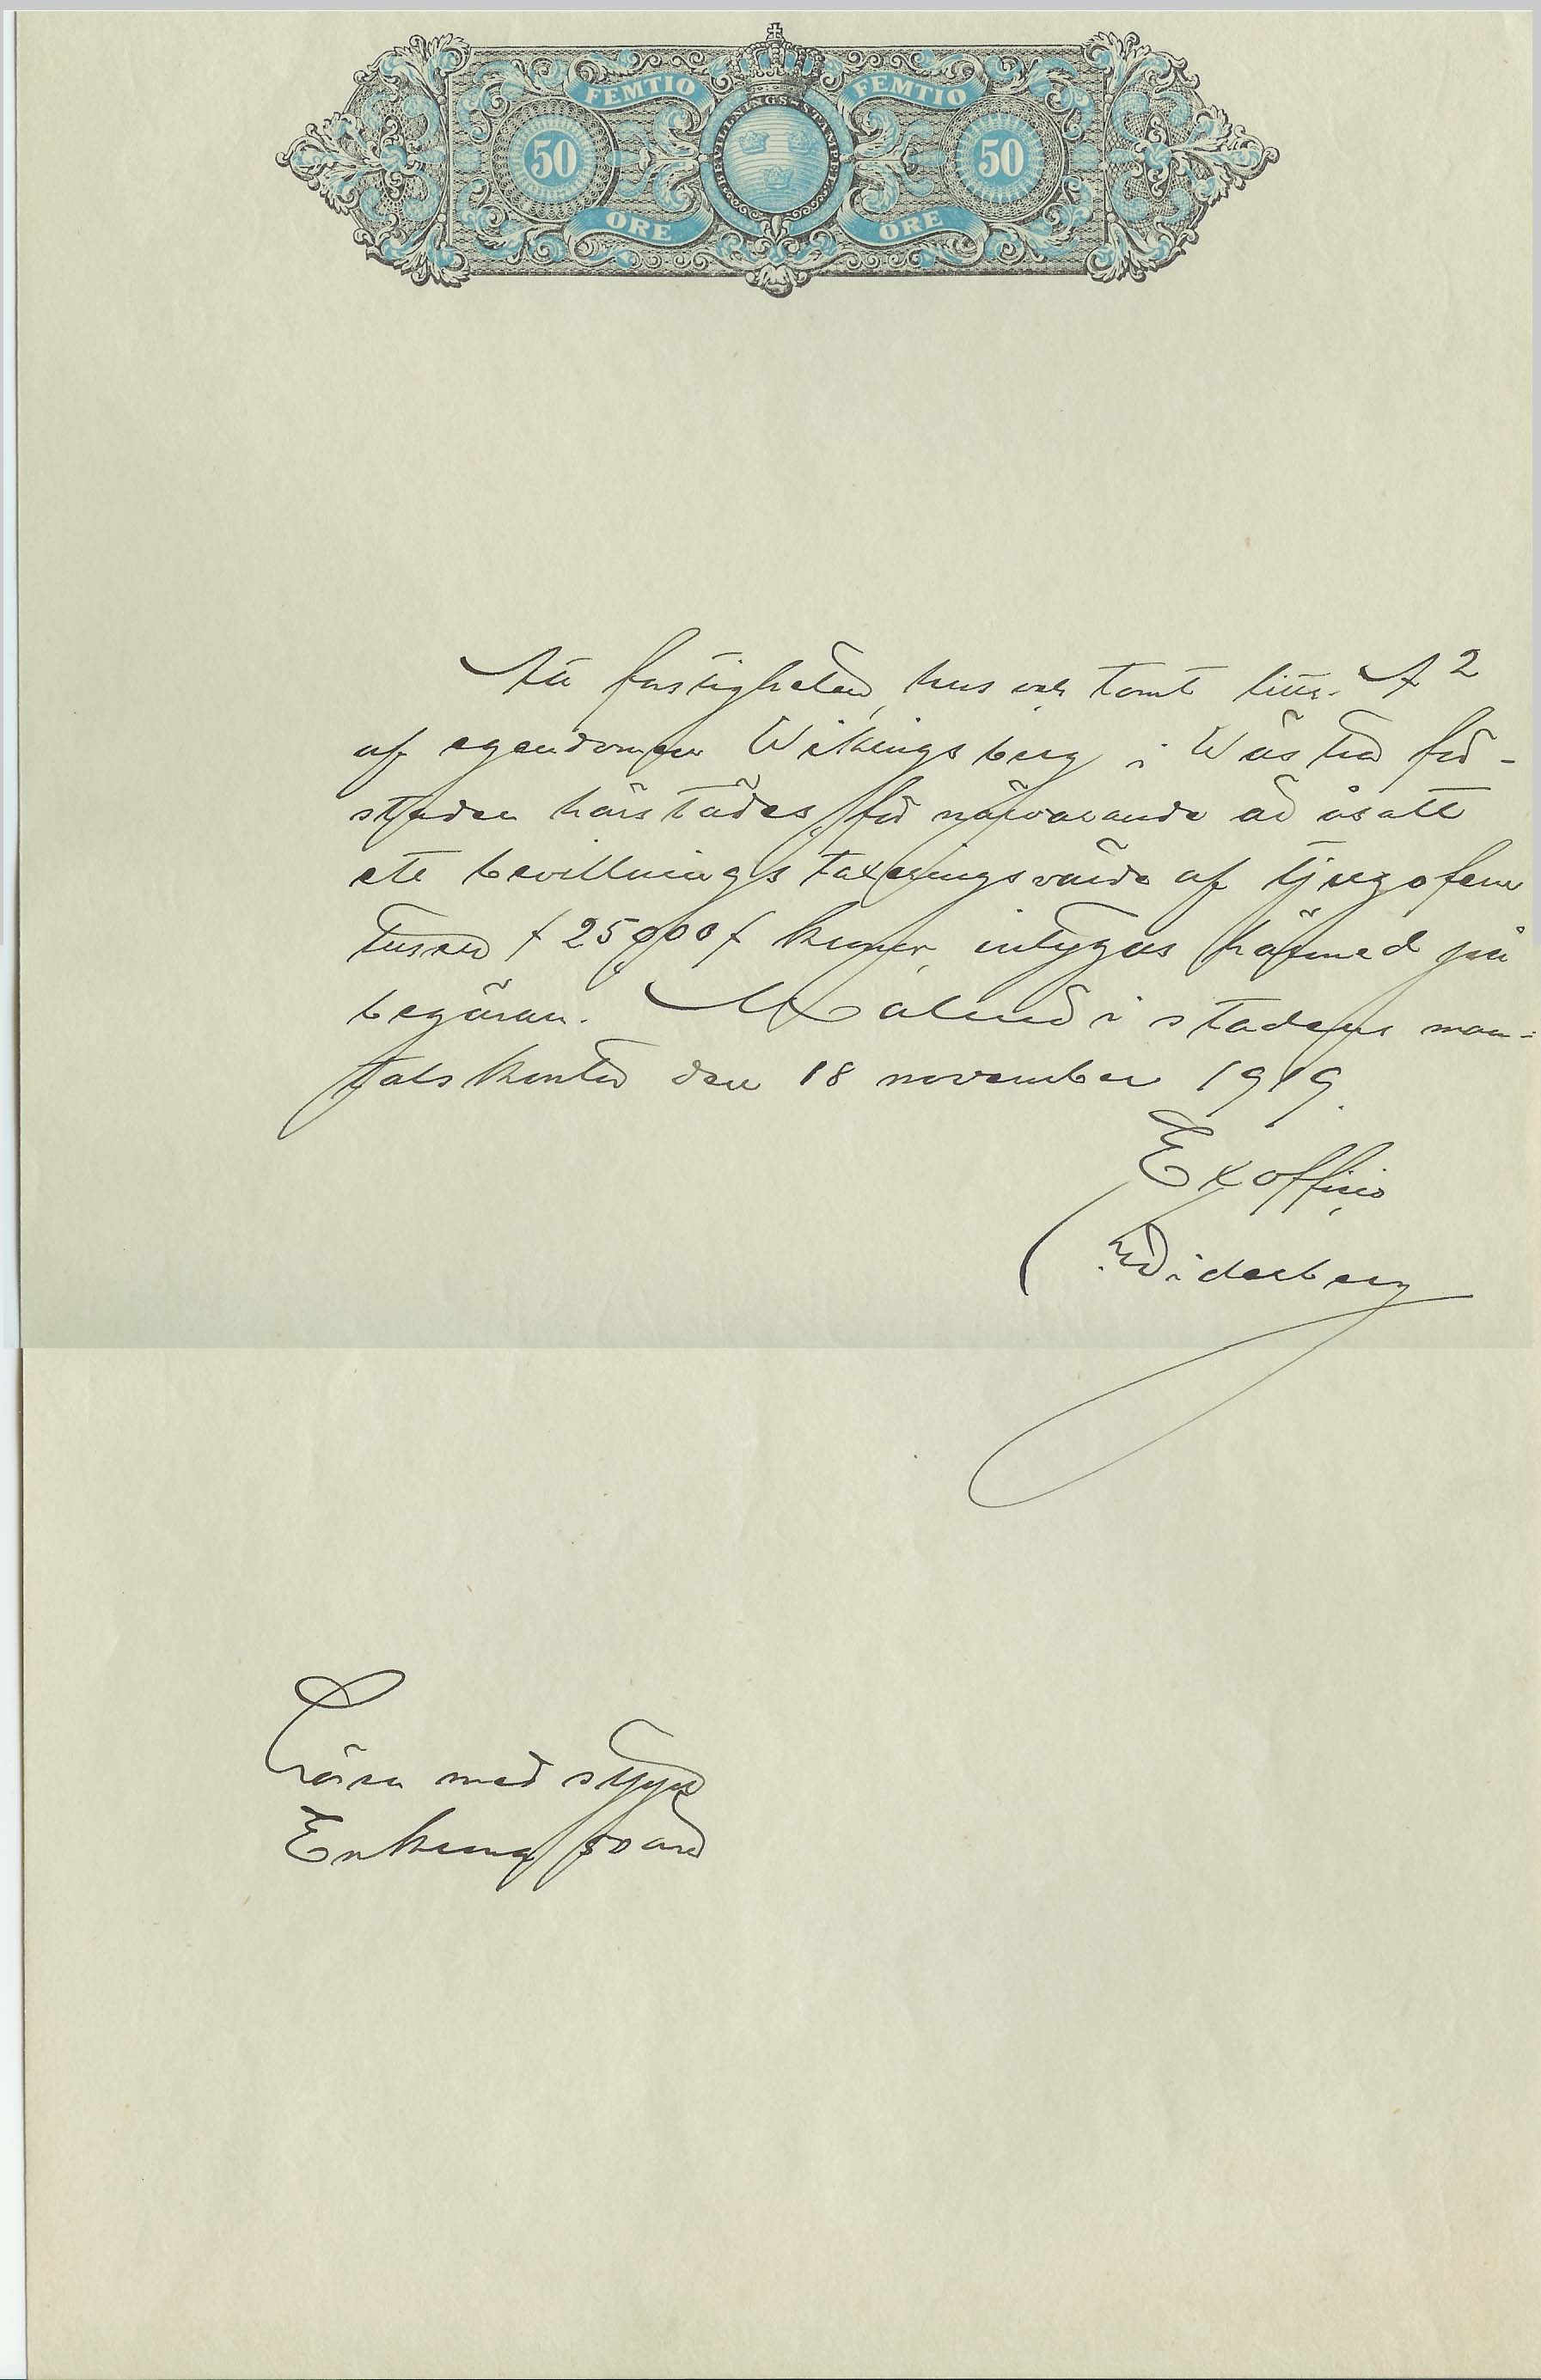 FEMTIO FEMTIO
50 BEVILLNINGS-STÄMPEL 50
ÖRE ÖRE
Att fastigheten, hus och tomt litt. A 2
af egendomen Wikingsberg i Wästra för-
staden härstädes, för närvarande är åsatt
ett bevillningstaxeringsvärde af tjugofem
tusen / 25,000 / kronor, intygas härmed på
begäran. Malmö i stadens man-
talskontor den 18 november 1919.
Ex officio
Widerberg
Lösen med stpp
En krona 50 öre